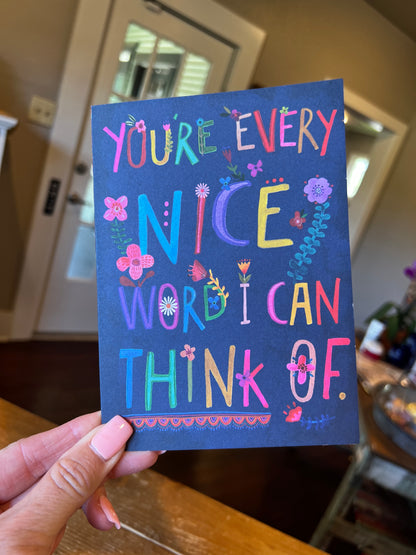 YOU'RE EVERY
NICE
WORD I CAN
THINK OF.